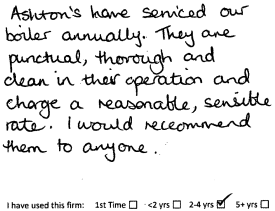 Ashton's have serviced our
boiler annually. They are
punctual, thorough and
clean in their operation and
charge a reasonable, sensible
rate. I would recommend
them to anyone.
I have used this firm: 1st Time ☐ <2 yrs ☐ 2-4 yrs ☑ 5+ yrs ☐